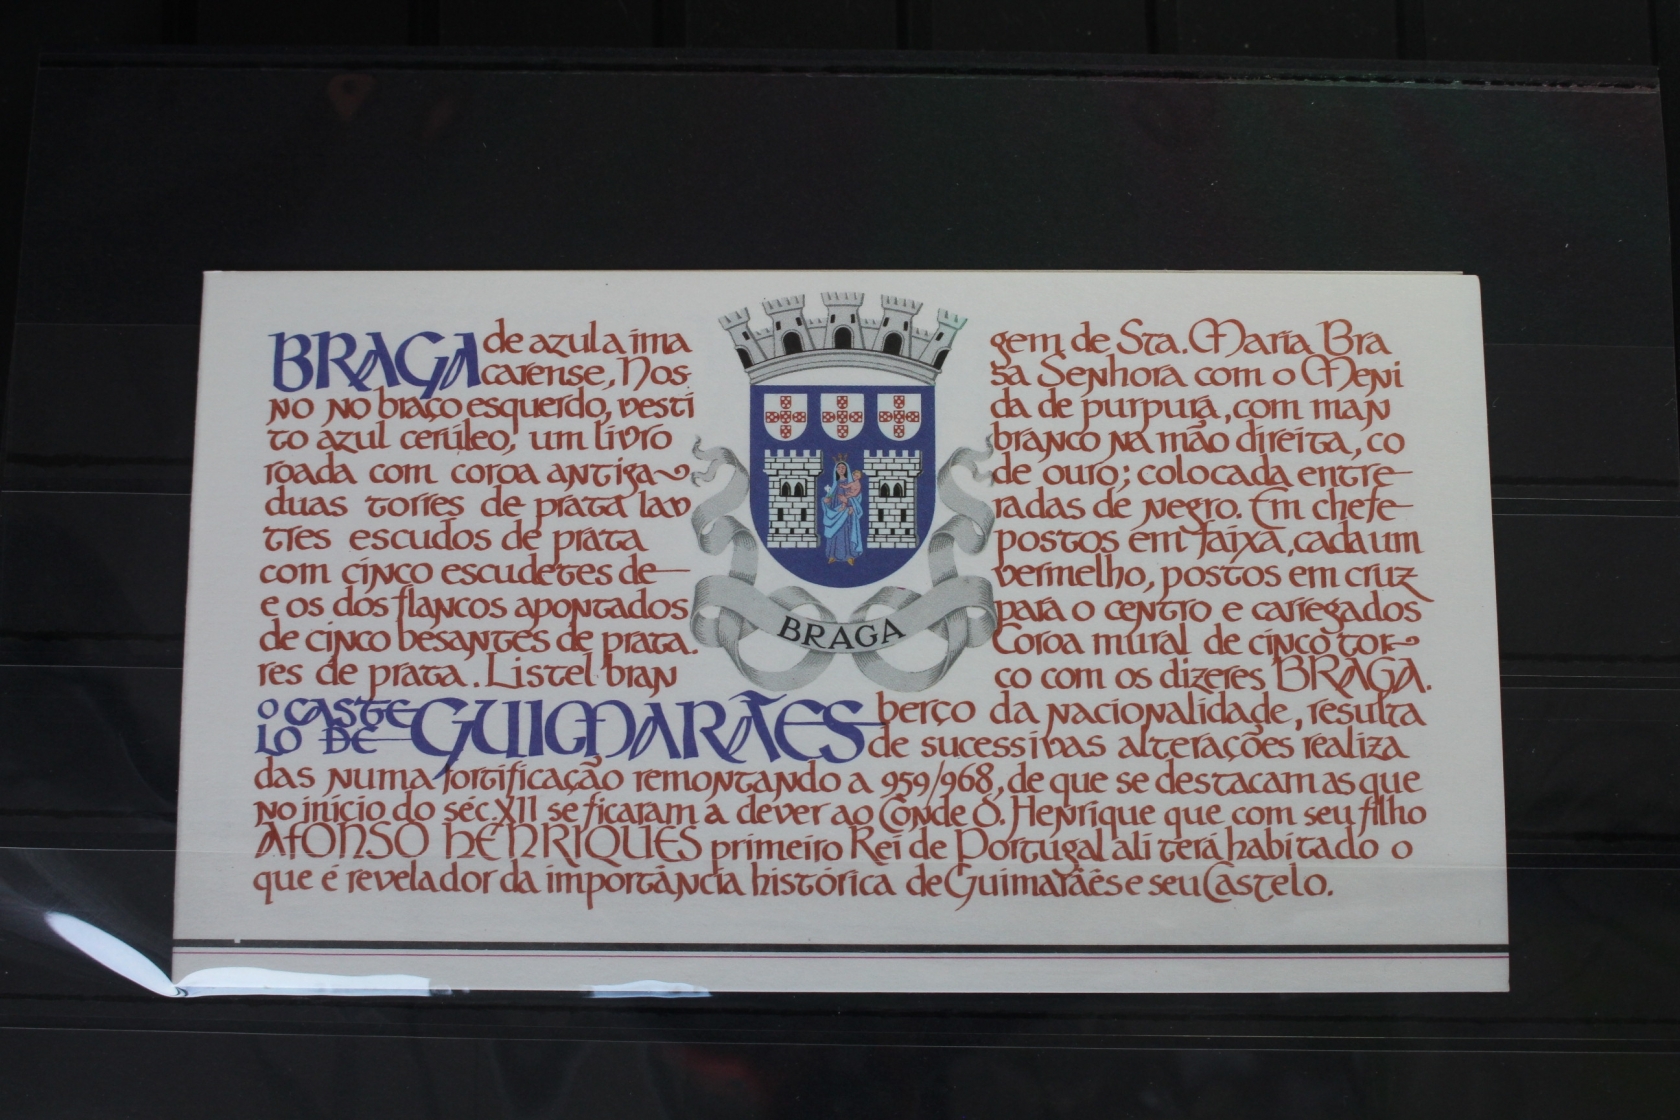 BRAGA de azul a ima gem de Sta. Maria Bra
carense, Nos sa Senhora com o Meni
no no braço esquerdo, vesti da de purpura, com man
to azul cerúleo, um livro branco na mão direita, co
roada com coroa antiga de ouro; colocada entre
duas torres de prata lav radas de negro. Em chefe
tres escudos de prata postos em faixa, cada um
com cinco escudetes de vermelho, postos em cruz
e os dos flancos apontados para o centro e carregados
de cinco besantes de prata. Coroa mural de cinco tor
res de prata. Listel bran co com os dizeres BRAGA.
BRAGA
O CASTELO DE GUIMARÃES berço da nacionalidade, resulta
de sucessivas alterações realiza
das numa fortificação remontando a 959/968, de que se destacam as que
no início do séc. XII se ficaram a dever ao Conde D. Henrique que com seu filho
AFONSO HENRIQUES primeiro Rei de Portugal ali terá habitado o
que é revelador da importância histórica de Guimarães e seu Castelo.